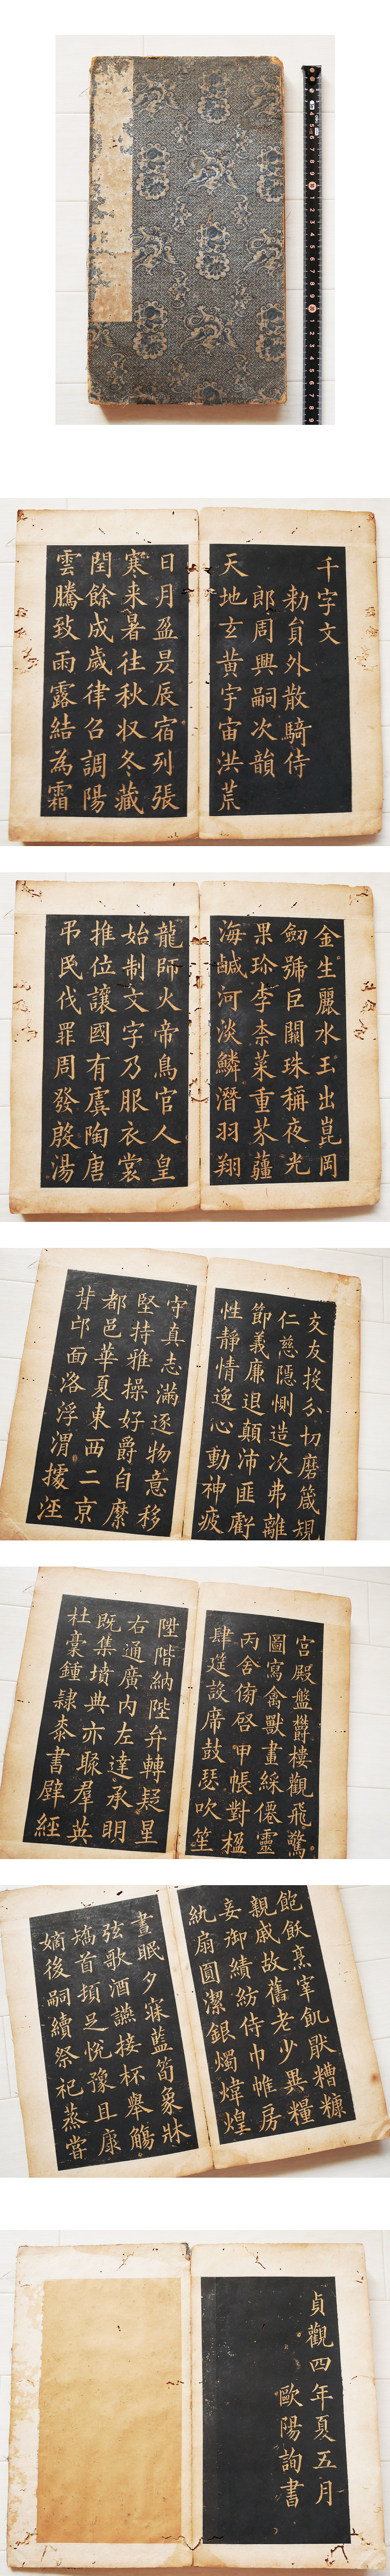 千字文
勅貟外散騎侍
郎周興嗣次韻
天地玄黃宇宙洪荒
日月盈昃辰宿列張
寒来暑往秋収冬藏
閏餘成歲律召調陽
雲騰致雨露結為霜
金生麗水玉出崑岡
劒號巨闕珠稱夜光
果珎李柰菜重芥薑
海醎河淡鱗潛羽翔
龍師火帝鳥官人皇
始制文字乃服衣裳
推位讓國有虞陶唐
弔民伐罪周發殷湯
交友投分切磨箴規
仁慈隱惻造次弗離
節義廉退顛沛匪虧
性靜情逸心動神疲
守真志滿逐物意移
堅持雅操好爵自縻
都邑華夏東西二京
背邙面洛浮渭據涇
宮殿盤欝樓觀飛驚
圖寫禽獸畫綵僊靈
丙舍傍啓甲帳對楹
肆筵設席鼓瑟吹笙
陞階納陛弁轉疑星
右通廣内左達承明
既集墳典亦聚羣英
杜稾鍾隸桼書壁經
飽飫烹宰飢猒糟糠
親戚故舊老少異糧
妾御績紡侍巾帷房
紈扇圓潔銀燭煒煌
晝眠夕寐藍筍象牀
弦歌酒讌接杯舉觴
矯首頓足悅豫且康
嫡後嗣續祭祀蒸嘗
貞觀四年夏五月
歐陽詢書